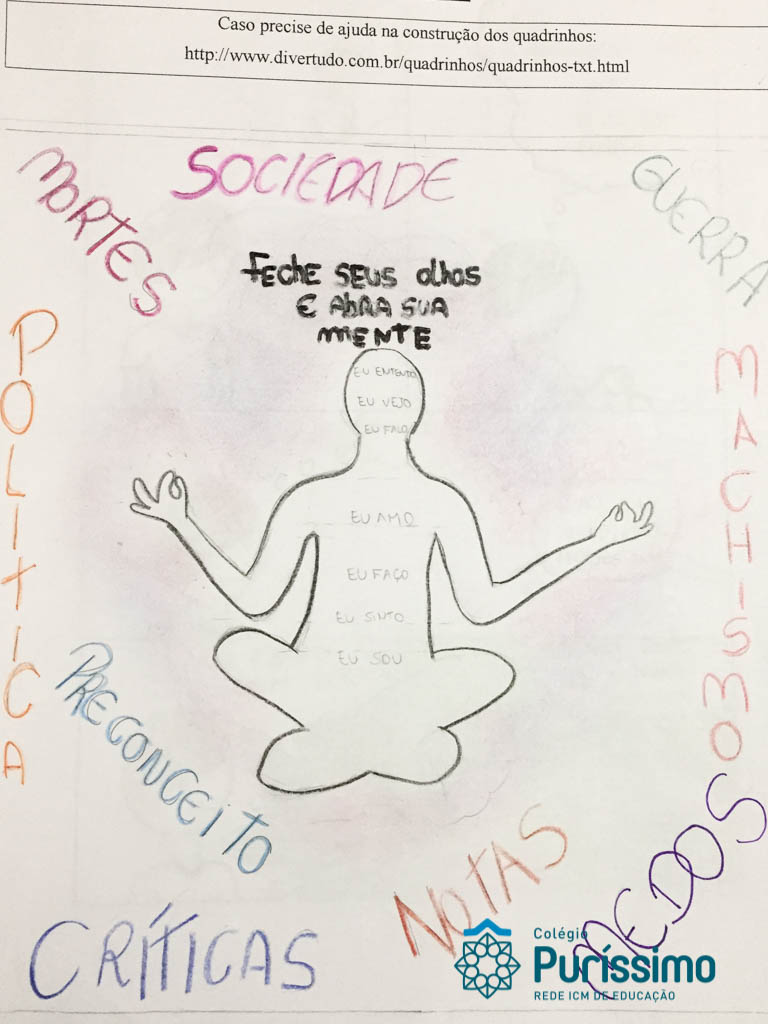 Caso precise de ajuda na construção dos quadrinhos:
http://www.divertudo.com.br/quadrinhos/quadrinhos-txt.html
SOCIEDADE
MORTES
GUERRA
FECHE SEUS OLHOS
E ABRA SUA
MENTE
POLITICA
MACHISMO
EU ENTENDO
EU VEJO
EU FALO
EU AMO
EU FAÇO
EU SINTO
EU SOU
PRECONCEITO
NOTAS
MEDOS
CRÍTICAS
Colégio
Puríssimo
REDE ICM DE EDUCAÇÃO